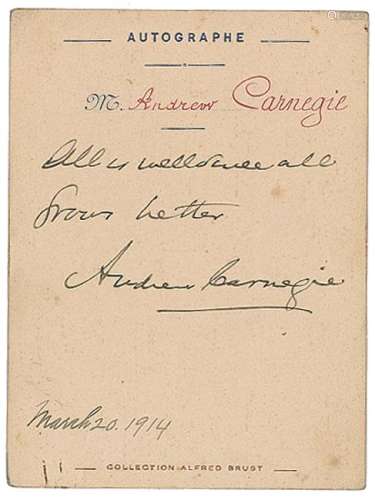 AUTOGRAPHE
M. Andrew Carnegie
All is well since all
grows better
Andrew Carnegie
March 20. 1914
COLLECTION ALFRED BRUST